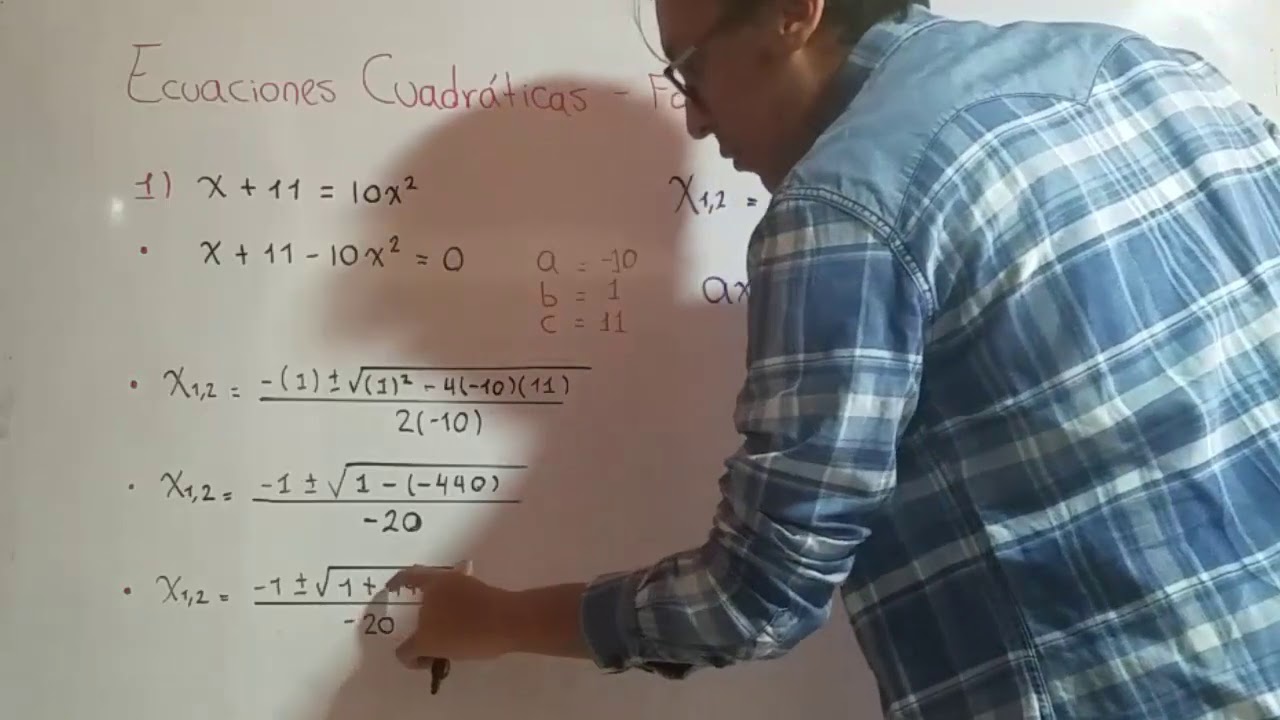 Ecuaciones Cuadráticas -
1) x + 11 = 10x²
X₁,₂ =
• x + 11 - 10x² = 0
a = -10
b = 1
c = 11
ax
• X₁,₂ = -(1) ± √(1)² - 4(-10)(11)
2(-10)
• X₁,₂ = -1 ± √1 - (-440)
-20
• X₁,₂ = -1 ± √1 +
-20